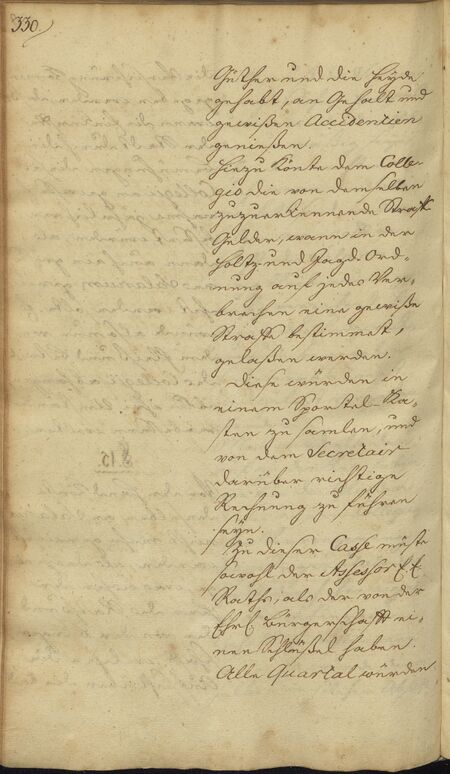 330.
Güther und die Heyde
gehabt, an Gehalt und
gewißen Accidentien
genießen.
Hiezu könte dem Colle-
gio die von demselben
zuzuerkennende Straff-
Gelder, wann in der
Holtz und Jagd-Ord-
nung auf jedes Ver-
brechen eine gewiße
Straffe bestimmet,
gelaßen werden.
Diese würden in
einem Sportel-Ka-
sten zu samlen, und
von dem Secretair
darüber richtige
Rechnung zu führen
seyn.
Zu dieser Casse müste
sowohl der Assessor E. E.
Raths, als der von der
Ehrl. Bürgerschafft ei-
nen Schlüßel haben.
Alle Quartal würden